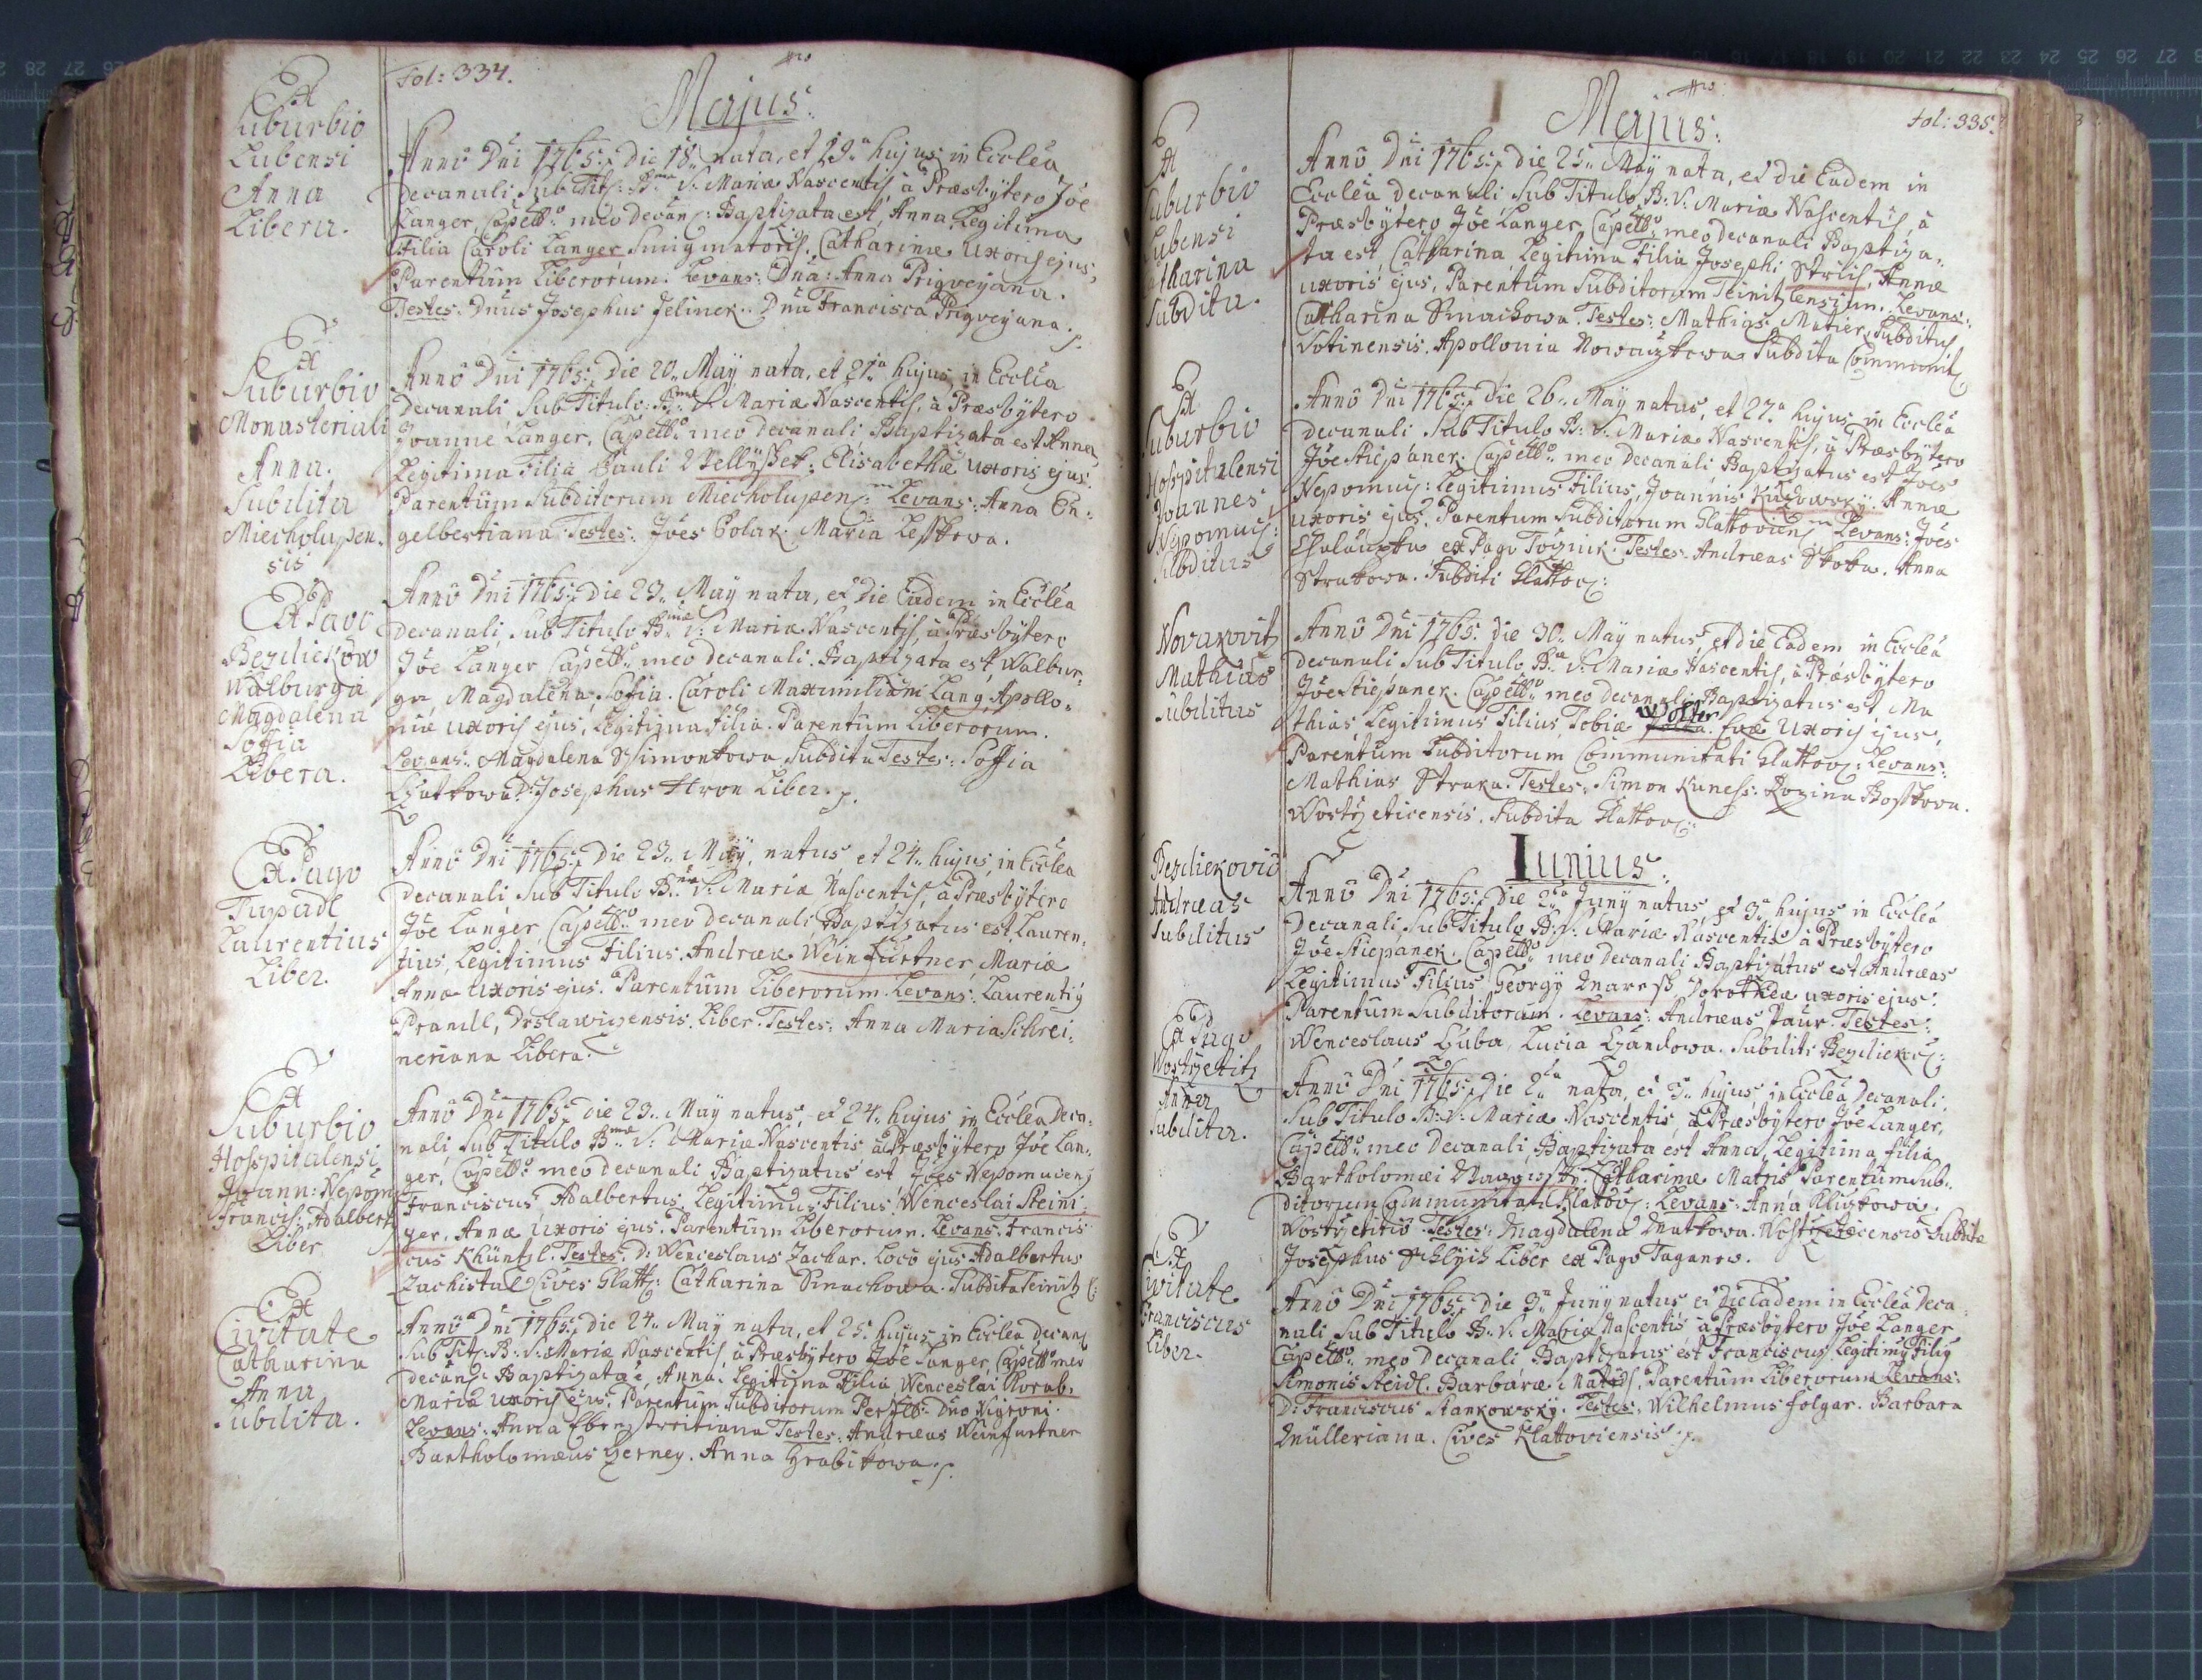 Fol: 334.
Majus.
Ex
Suburbio
Lubensi
Anna
Libera.
Anno Dni 1765. Die 18 nata, et 19a hujus in Ecclea
Decanali, Sub Tit: B:mae V: Mariae Nascentis à Praesbytero Joe
Langer, Capello meo decan: Baptizata est, Anna, Legitima
Filia Caroli Langer Smigmatoris. Catharinae Uxoris ejus,
Parentum Liberorum. Levans: Dna: Anna Prigveyana.
Testes: Dnus Josephus Jelinek. Dna Francisca Prigveyana.
Ex
Suburbio
Monasteriali
Anna.
Subdita
Miecholupen.
sis
Anno Dni 1765. Die 20. Maÿ nata, et 21a hujus in Ecclea
Decanali Sub Titulo: B:mae V: Mariae Nascentis, à Praesbÿtero
Joanne Langer, Capello meo decanali Baptizata est Anna,
Legitima Filia Pauli Wellÿsset. Elisabethae uxoris ejus.
Parentum Subditorum Miecholupen: Levans: Anna En:
gelbertiana Testes: Joes Polak. Maria Lesstowa.
Ex Pavo
Bezdiekow
Walburga
Magdalena
Soffia
Libera.
Anno Dni 1765. Die 23. Maÿ nata, et Die Eadem in Ecclea
Decanali, Sub Titulo B:mae V: Mariae Nascentis, à Praesbÿtero
Joe Langer Capello meo decanali. Baptizata est, Walbur:
ga, Magdalena, Sofia. Caroli Maximiliani Lang, Apollo:
niae uxoris ejus, Legitima filia. Parentum Liberorum.
Levans: Magdalena Ssimonkowa Subdita Testes: Soffia
Josephus Hron Liber.
Ex Pago
Tupadl
Laurentius
Liber.
Anno Dni 1765. Die 23. Maÿ, natus et 24. hujus in Ecclea
Decanali Sub Titulo B:mae V: Mariae Nascentis, à Praesbÿtero
Joe Langer Capello meo decanali Baptizatus est, Lauren:
tius, Legitimus Filius. Andreae Weinfurtner, Mariae
Annae Uxoris ejus. Parentum Liberorum. Levans: Laurentiÿ
Prandl, Drslawizensis Liber. Testes: Anna Maria Schrei:
neriana Libera.
Ex
Suburbio
Hospitalensi
Joann: Nepom
Francis: Adalbert
Liber
Anno Dni 1765. Die 23. Maÿ natus, et 24. hujus in Ecclea Deca:
nali, Sub Titulo B:mae V: Mariae Nascentis à Praesbÿtero Joe Lan:
ger, Capello meo decanali Baptizatus est Joes Nepomucen
Franciscus, Adalbertus, Legitimus Filius, Wenceslai Steini:
ger, Annae Uxoris ejus. Parentum Liberorum. Levans: Francis
cus Khüntzl. Testes: D: Wenceslaus Zachar. Loco ejus Adalbertus
Zachistal Cives Glatt: Catharina Smachowa. Subdita Teinitz
Ex
Civitate
Catharina
Anna
Subdita.
Anno Dni 1765. Die 24. Maÿ nata, et 25. hujus in Ecclea Decan
Sub Tit: B: V: Mariae Nascentis, à Praesbytero Joe Langer, Capello meo
decan: Baptizata e, Anna. Legitima Filia Wenceslai Korab.
Mariae uxoris ejus. Parentum Subditorum Per Ill: Dno Nigroni.
Levans: Anna Ebenstreitiana Testes: Andreas Weinfurtner
Bartholomaeus Czerney. Anna Hrabikowa.
Fol: 335.
Majus.
Ex
Suburbio
Lubensi
Catharina
Subdita.
Anno Dni 1765. Die 25. Maÿ nata, et die Eadem in
Ecclea Decanali Sub Titulo, B: V: Mariae Nascentis, à
Praesbÿtero Joe Langer Capello meo decanali Baptiza:
ta est Catharina Legitima Filia Josephi Annae
uxoris ejus, Parentum Subditorum Teinitzlensium. Levans:
Catharina Smachowa. Testes: Mathias Subditus
Votinensis. Apollonia Subdita Communit
Ex
Suburbio
Hospitalensi
Joannes
Nepomuc:
Subditus
Anno Dni 1765. Die 26. Maÿ natus, et 27a hujus in Ecclea
Decanali Sub Titulo B: V: Mariae Nascentis, à Praesbÿtero
Joe Stiepanek. Capello meo Decanali Baptizatus est Joes
Nepomuc: Legitimus Filius, Joannis Kudowsky. Annae
uxoris ejus. Parentum Subditorum Glattovien Levans: Joes
Chalaupka ex Pago Toznik. Testes: Andreas Skoba. Anna
Strakowa. Subditi Glattov:
Novakovitz
Mathias
Subditus
Anno Dni 1765. die 30. Maÿ natus, et die Eadem in Ecclea
Decanali Sub Titulo B:ae V: Mariae Nascentis, à Praesbÿtero
Joe Stiepanek. Capello meo decanali Baptizatus est Ma
thias, Legitimus Filius, Tobiae Evae Uxoris ejus,
Parentum Subditorum Communitati Glattov: Levans:
Mathias Straka. Testes: Simon Kuness. Rozina Bosstowa.
Wostÿeticensis. Subdita Glattov:
Iunius.
Bezdiekovio
Andreas
Subditus
Anno Dni 1765. Die 2da Junÿ natus, et 3a hujus in Ecclea
Decanali, Sub Titulo B: V: Mariae Nascentis à Praesbÿtero
Joe Stiepanek. Capello meo Decanali Baptizatus est Andreas
Legitimus Filius Georgÿ Maress Dorotheae uxoris ejus.
Parentum Subditorum. Levans: Andreas Paur. Testes:
Wenceslaus Huba, Lucia Subditi Bezdiekov:
Ex Pago
Wostÿetitz
Anna
Subdita.
Anno Dni 1765. Die 2da nata, et 3. hujus, in Ecclea Decanali.
Sub Titulo B: V: Mariae Nascentis, à Praesbÿtero Joe Langer,
Capello meo Decanali, Baptizata est Anna, Legitima filia
Bartholomaei Catharinae Matris Parentum Sub:
ditorum Communitati Klatov: Levans: Anna Kliskowa.
Wostÿetitio. Testes: Magdalena Matkowa. Wostÿeticensis Subdita
Josephus Schlÿich Liber ex Pago Taganow.
Ex
Civitate
Franciscus
Liber.
Anno Dni 1765. Die 3a Junÿ natus et Die Eadem in Ecclea Deca:
nali Sub Titulo B: V: Mariae Nascentis à Praesbÿtero Joe Langer
Capello meo Decanali Baptizatus est Franciscus Legitimÿ Filiÿ
Simonis Steidl. Barbarae Matris, Parentum Liberorum Levans:
D: Franciscus Stankowsky. Testes: Wilhelmus Folgar. Barbara
Mülleriana. Cives Klattoviensis.